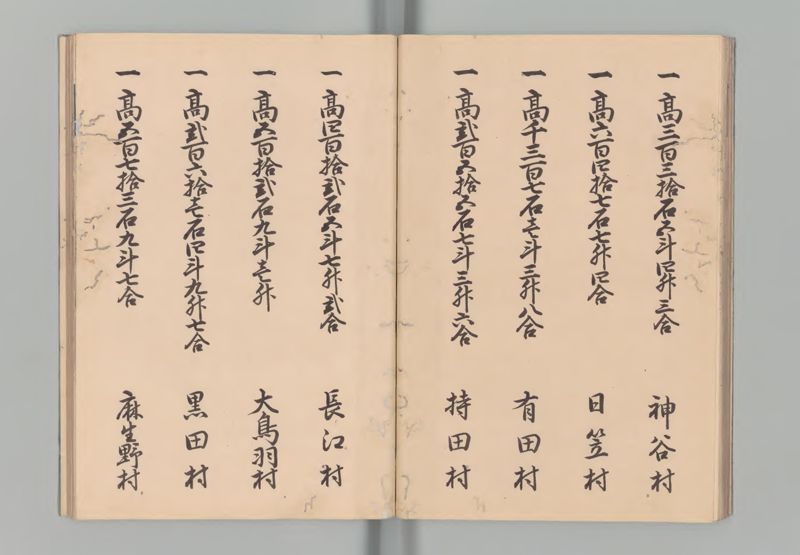 一高三百三拾石五斗四升三合 神谷村
一高六百四拾七石七升四合 日笠村
一高千三百七石壱斗三升八合 有田村
一高弐百五拾五石七斗三升六合 持田村
一高四百拾弐石五斗七升弐合 長江村
一高五百拾弐石九斗壱升 大鳥羽村
一高弐百六拾壱石四斗九升七合 黒田村
一高五百七拾三石九斗七合 麻生野村